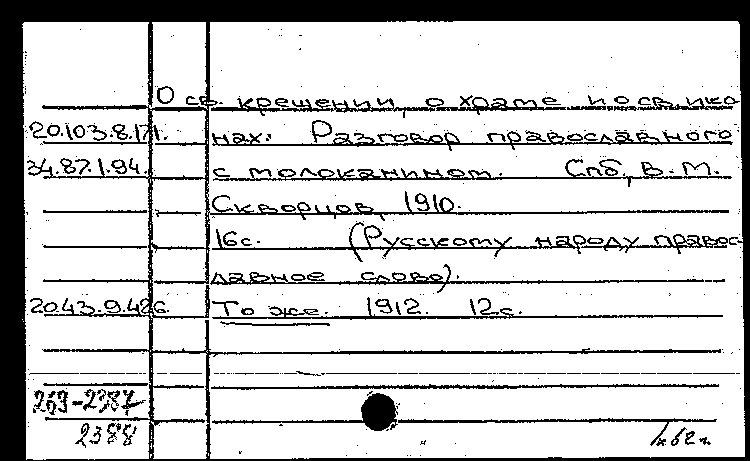 О св. крещении, о храме и о св. ико
20.103.8.171. нах: Разговор православного
34.87.1.94. с молоканином. Спб, В. М.
Скворцов, 1910.
16с. (Русскому народу правос-
лавное слово).
20.43.9.426. То же. 1912. 12с.
269-2387
2388